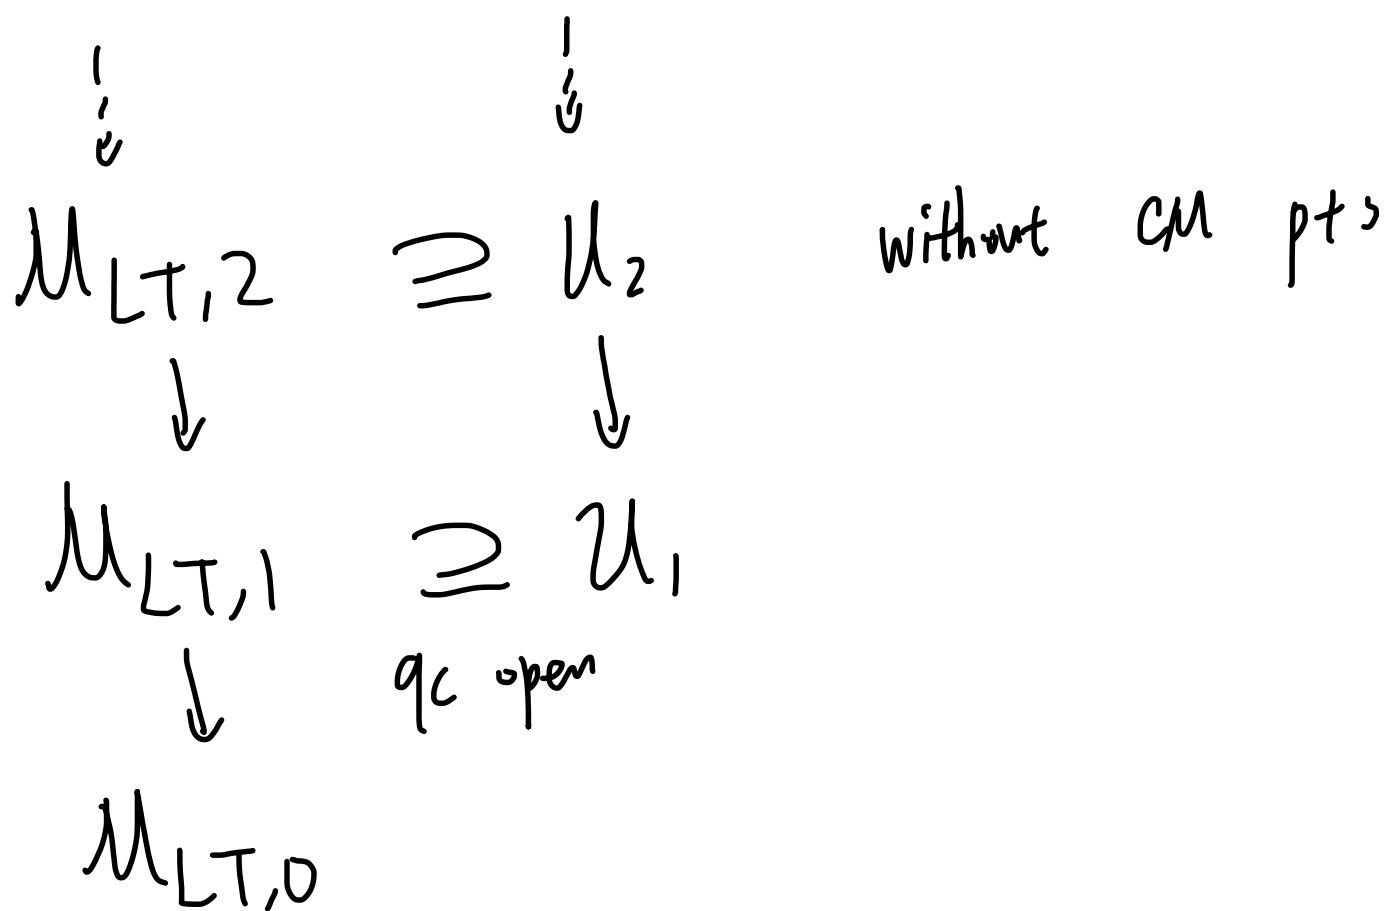 M_{LT,2} ⊇ U_2 without CM pts
M_{LT,1} ⊇ U_1
qc open
M_{LT,0}